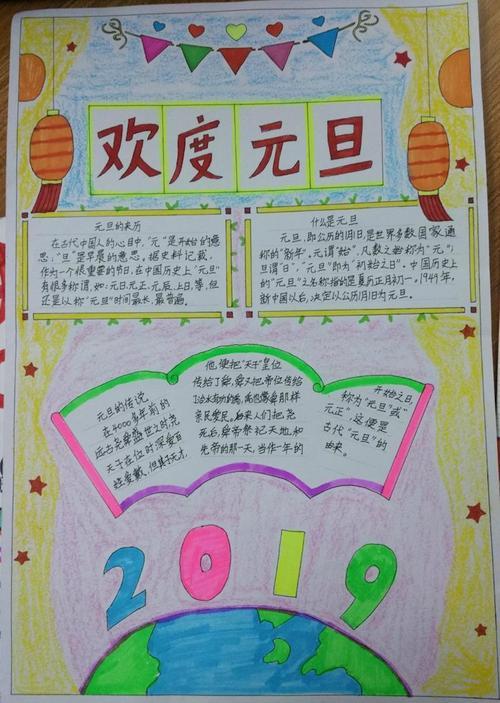 欢度元旦
元旦的来历
在古代中国人的心目中,"元"是开始的意
思;"旦"是早晨的意思。据史料记载,
作为一个很重要的节日,在中国历史上"元旦"
有很多称谓,如:元日、元正、元辰、上日等,但
还是以称"元旦"时间最长、最普遍。
什么是元旦
元旦,即公历的1月1日,是世界多数国家通
称的"新年"。元谓"始",凡数之始称为"元";
旦谓"日","元旦"即为"初始之日"。中国历史上
的"元旦"之名称指的是夏历正月初一。1949年
新中国以后,决定以公历1月1日为元旦。
元旦的传说
在4000多年前的
远古尧舜盛世之时,尧
天子在位时深爱百
姓爱戴,但其子无才,
他便把"天子"皇位
传给了舜,舜又把帝位传给
亲民爱民,后来人们把尧
死后,舜帝祭祀天地和
先帝的那一天,当作一年的
开始之日,
称为"元旦"或"
元正",这便是
古代"元旦"的
由来。
2019